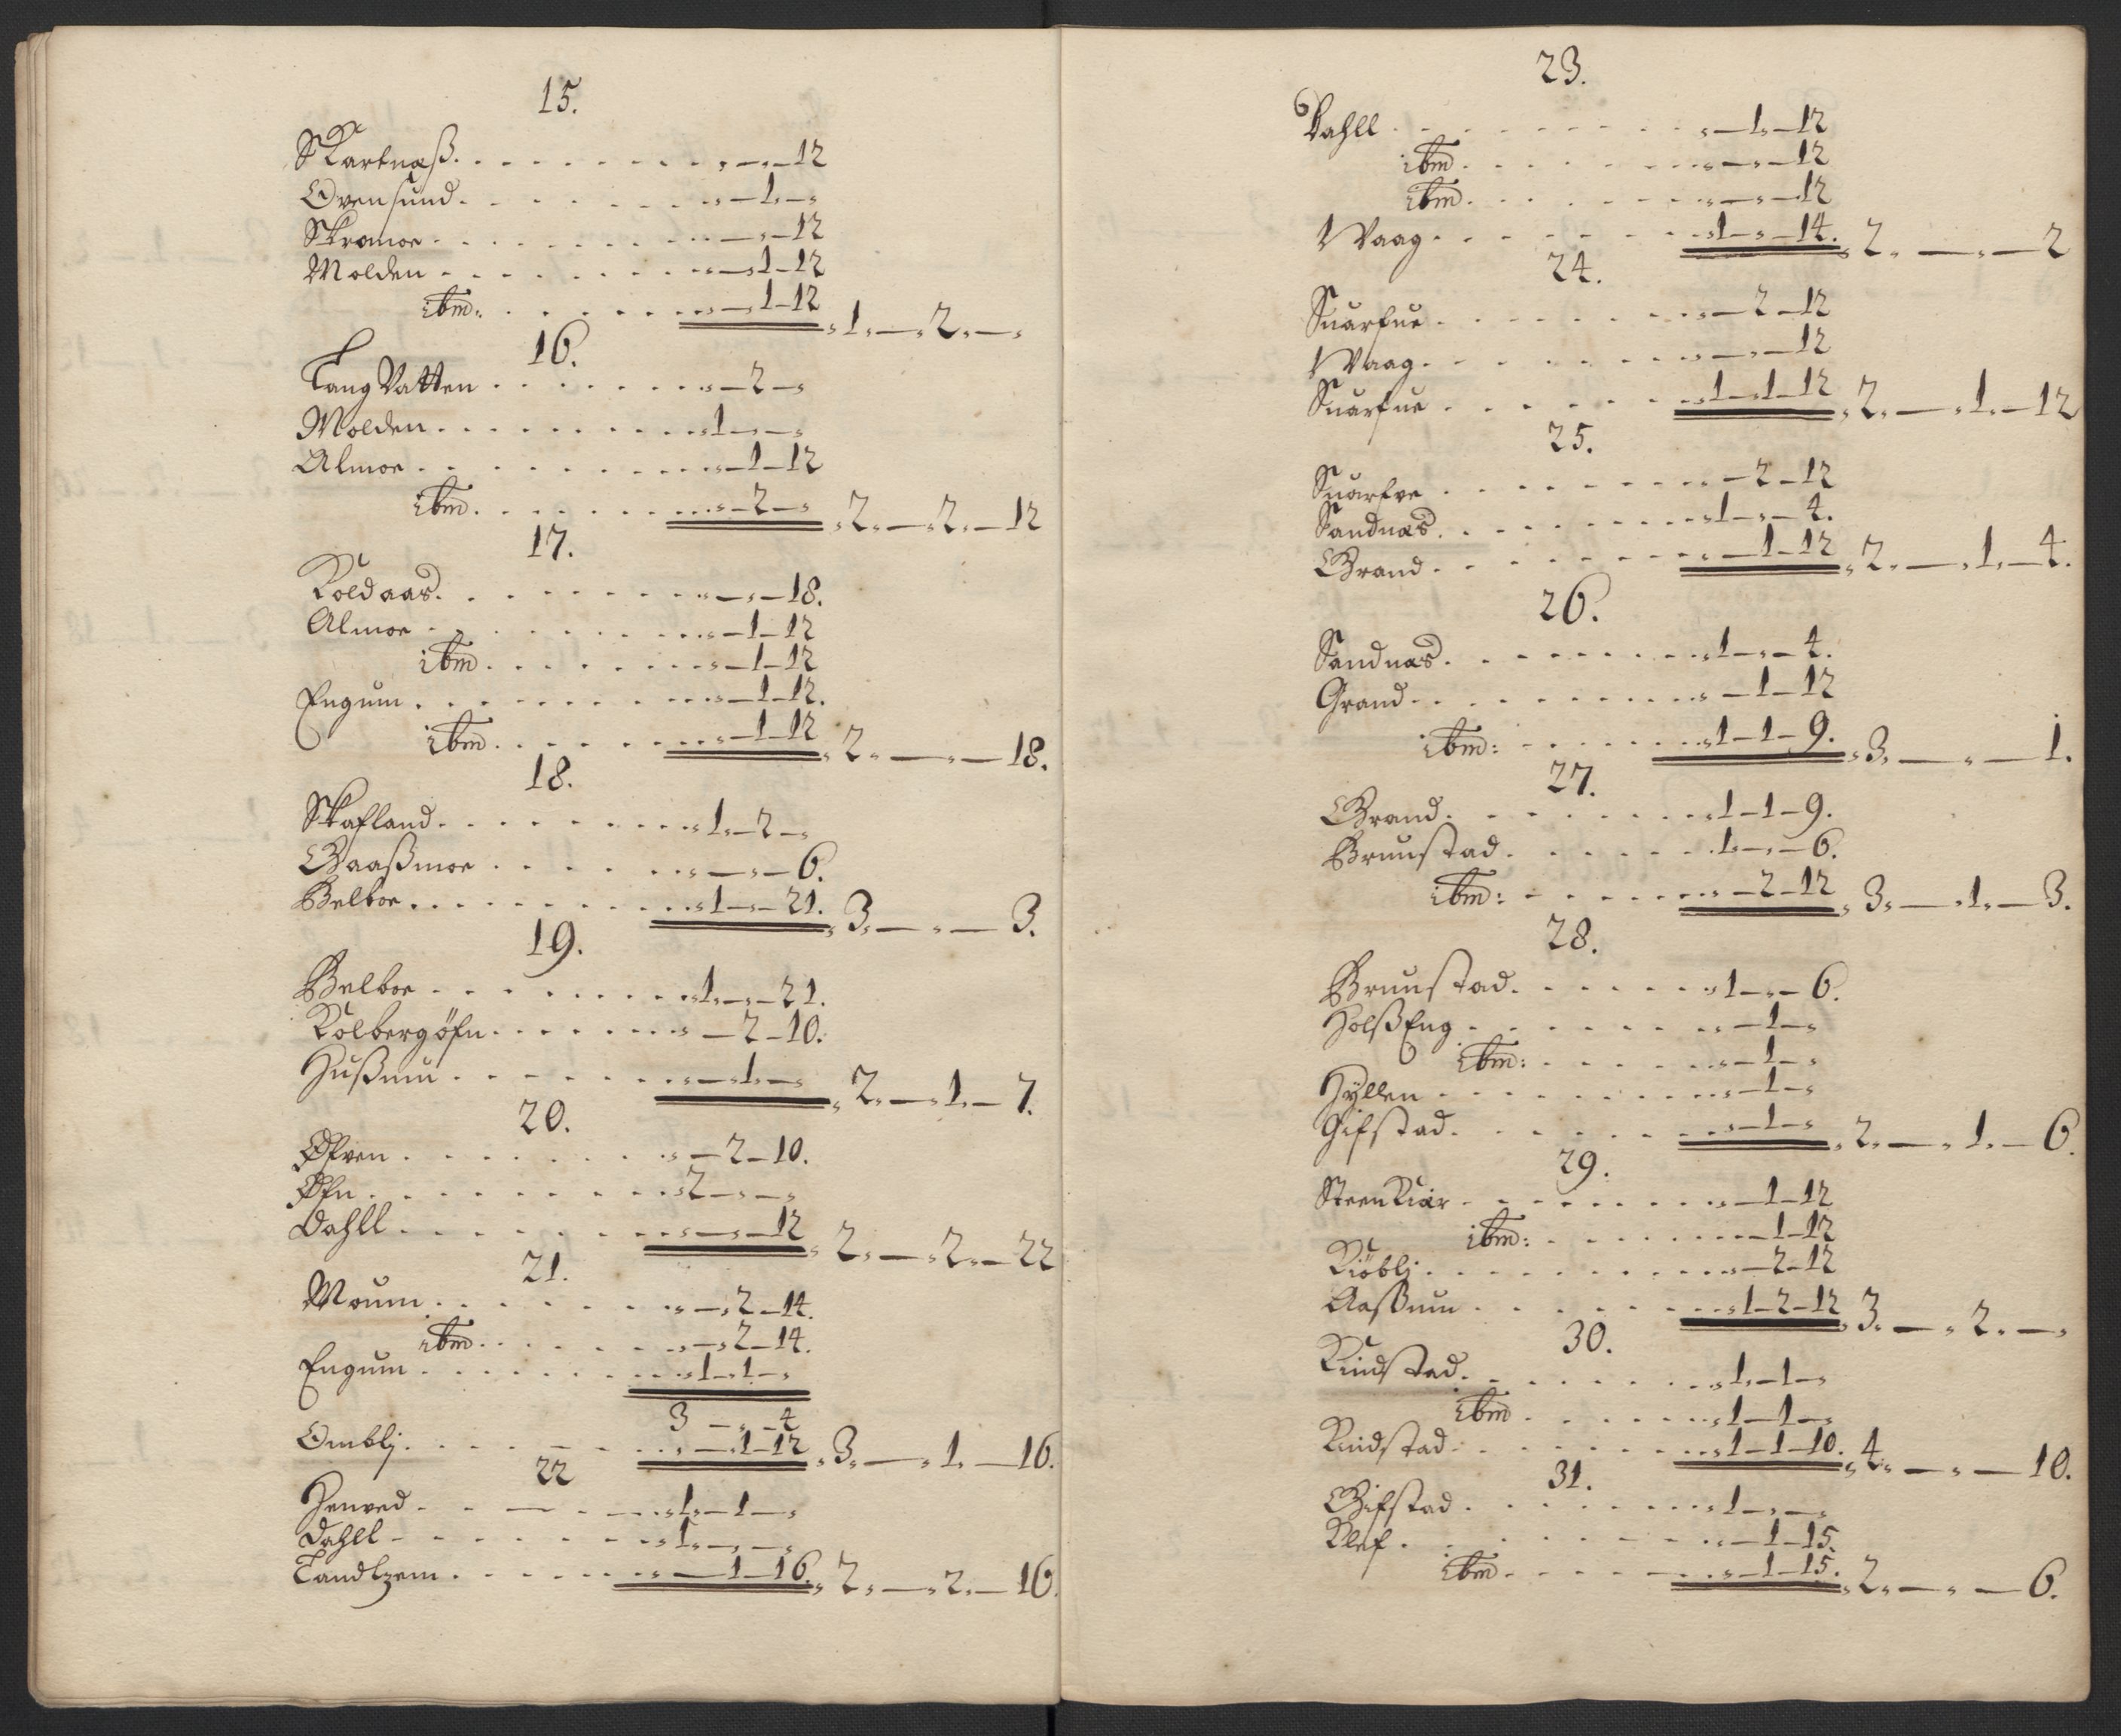 15.
Skartnæß. . . . . . . . . , — „ — 12
Ovensund. . . . . . . . „ — 1. — „
Skromoe . . . . . . . . „ — „ — 12
Molden . . . . . . . . „ — 1 — 12
ibm: . . . . . . . „ — 1 — 12 „ 1. — „ 2. — „
16.
Tang Vatten . . . . . . . „ — 2 — „
Molden . . . . . . . . . „ 1 — „ — „
Almoe . . . . . . . . „ — 1 — 12
ibm. . . . . . . . „ — 2 — „ „ 2. — „ 2. — 12
17.
Koldaas. . . . . . . . „ — „ — 18.
Almoe . . . . . . . . „ — 1 — 12
ibm. . . . . . . „ — 1 — 12
Engum . . . . . . . . „ — 1 — 12.
ibm. . . . . . . „ — 1 — 12 „ 2. — „ — 18.
18.
Skafland. . . . . . . . „ 1. — 2 — „
Gaaßmoe . . . . . . . „ — „ — 6.
Belboe . . . . . . . . „ 1 — „ — 21. „ 3. — „ — 3.
19.
Belboe . . . . . . . . „ 1. — „ — 21.
Kolbergöfn . . . . . . . „ — 2 — 10.
Hußum . . . . . . . „ — 1. — „ „ 2. — „ 1. — 7.
20.
Øfren . . . . . . . . „ — 2 — 10.
Øfn . . . . . . . . „ 2 — „ — „
Dahll . . . . . . . . „ — „ — 12 „ 2. — „ 2. — 22
21.
Moum . . . . . . . „ — „ 2 — 14.
ibm . . . . . . „ — „ 2 — 14.
Engum . . . . . . . . „ 1 — 1 — „
3 — „ — 4
Ombli. . . . . . . . „ — 1 — 12 „ 3. — „ 1. — 16.
22
Henved . . . . . . „ 1. — 1 — „
Dahll . . . . . . . „ 1. — „ — „
Landtzem . . . . . . . „ — 1 — 16. „ 2. — „ 2. — 16.
23.
Dahll . . . . . . . . „ — 1. — 12
ibm. . . . . . . „ — „ — 12
ibm. . . . . . . „ — „ — 12
Waag . . . . . . . „ 1 — „ — 14. „ 2. — „ — 2
24.
Snarfue . . . . . . . . „ — 2 — 12
Waag . . . . . . . „ — „ — 12
Snarfue . . . . . . . „ 1 — 1 — 12 „ 2. — „ 1. — 12
25.
Snarfve . . . . . . . . „ — 2 — 12
Sandnæs. . . . . . . . „ 1 — „ — 4.
Grand . . . . . . . . „ — 1 — 12 „ 2. — „ 1. — 4.
26.
Sandnæs. . . . . . . . „ 1 — „ — 4.
Grand . . . . . . . . „ — 1 — 12
ibm: . . . . . . „ 1 — 1 — 9. „ 3. — „ — 1.
27.
Grand. . . . . . . . „ 1 — 1 — 9.
Brunstad . . . . . . „ 1. — „ — 6.
ibm: . . . . . . „ — 2 — 12 „ 3. — „ 1. — 3.
28.
Brunstad. . . . . . . „ 1 — „ — 6.
HolßEng . . . . . . . „ — 1 — „
ibm: . . . . . . „ — 1 — „
Hyllen . . . . . . . . „ — 1 — „
Gifstad. . . . . . . . „ — 1 — „ „ 2. — „ 1. — 6.
29.
Steen Kiær . . . . . . . „ — 1 — 12
ibm: . . . . . . — 1 — 12
Kiöbli . . . . . . . . „ — 2 — 12
Aaßum . . . . . . . „ 1 — 2 — 12 „ 3. — „ 2. — „
30.
Rindstad. . . . . . . . „ 1. — 1 — „
ibm . . . . . . „ 1 — 1 — „
Rindstad . . . . . . . „ 1 — 1 — 10. „ 4. — „ — 10.
31.
Gifstad . . . . . . . „ 1 — „ — „
Klef . . . . . . . . „ — 1 — 15.
ibm . . . . . . „ — 1 — 15. „ 2. — „ — 6.